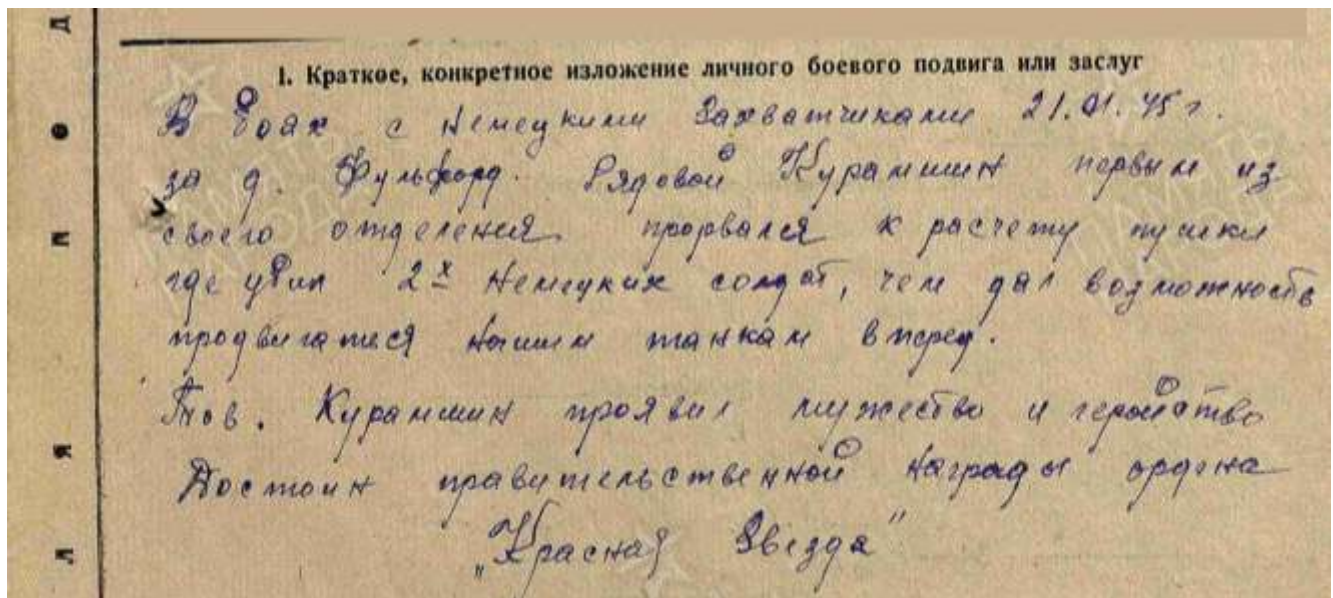 I. Краткое, конкретное изложение личного боевого подвига или заслуг
В боях с немецкими захватчиками 21.01.45 г.
за д. Фульфорд. Рядовой Курамшин первым из
своего отделения прорвался к расчету пушки
где убил 2х немецких солдат, чем дал возможность
продвигатися нашим танкам вперед.
Тов. Курамшин проявил мужество и геройство
Достоин правительственной награды ордена
„Красная Звезда"